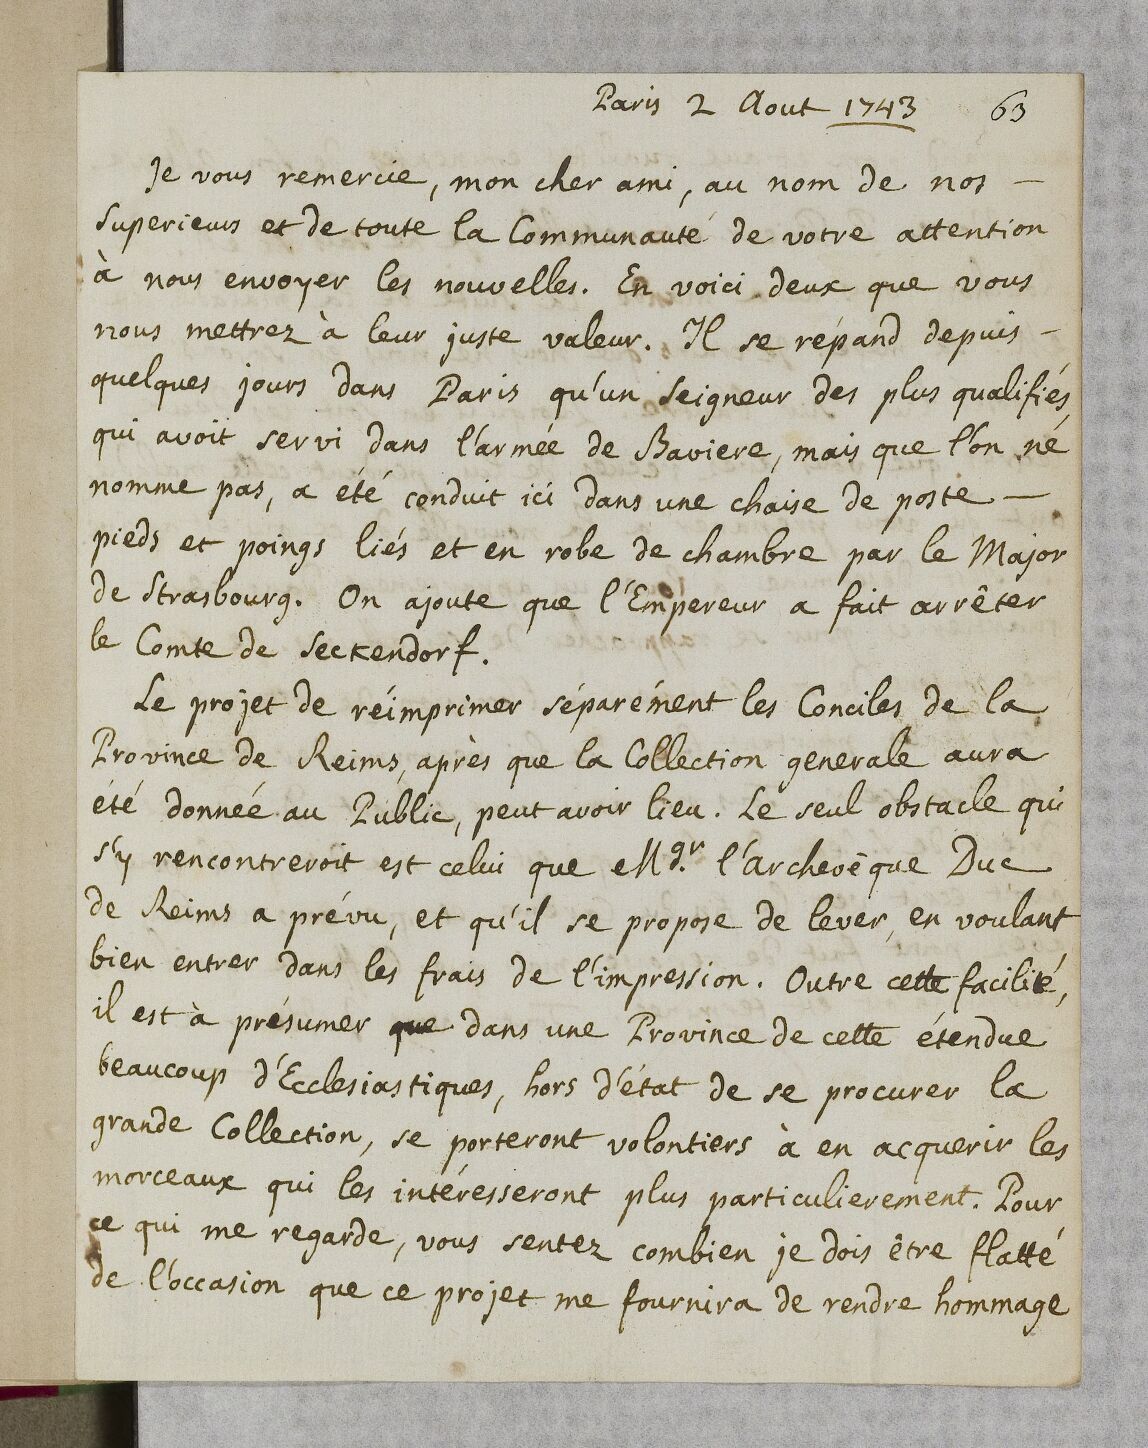 Paris 2 Aout 1743 63
Je vous remercie, mon cher ami, au nom de nos –
Superieurs et de toute la Communauté de votre attention
à nous envoyer les nouvelles. En voici deux que vous
nous mettrez à leur juste valeur. Il se répand depuis –
quelques jours dans Paris qu'un Seigneur des plus qualifiés,
qui avoit servi dans l'armée de Baviere, mais que l'on né
nomme pas, a été conduit ici dans une chaise de poste —
pieds et poings liés et en robe de chambre par le Major
de Strasbourg. On ajoute que l'Empereur a fait arrêter
le Comte de Seckendorf.
Le projet de réimprimer séparément les Conciles de la
Province de Reims, après que la Collection generale aura
été donnéé au Public, peut avoir lieu. Le seul obstacle qui
s'y rencontreroit est celui que Mgr. l'Archevêque Duc
de Reims a prévu, et qu'il se propose de lever, en voulant
bien entrer dans les frais de l'impression. Outre cette facilité,
il est à présumer que dans une Province de cette étendue
beaucoup d'Ecclesiastiques, hors d'état de se procurer la
grande Collection, se porteront volontiers à en acquerir les
morceaux qui les intéresseront plus particulierement. Pour
ce qui me regarde, vous sentez combien je dois être flatté
de l'occasion que ce projet me fournira de rendre hommage